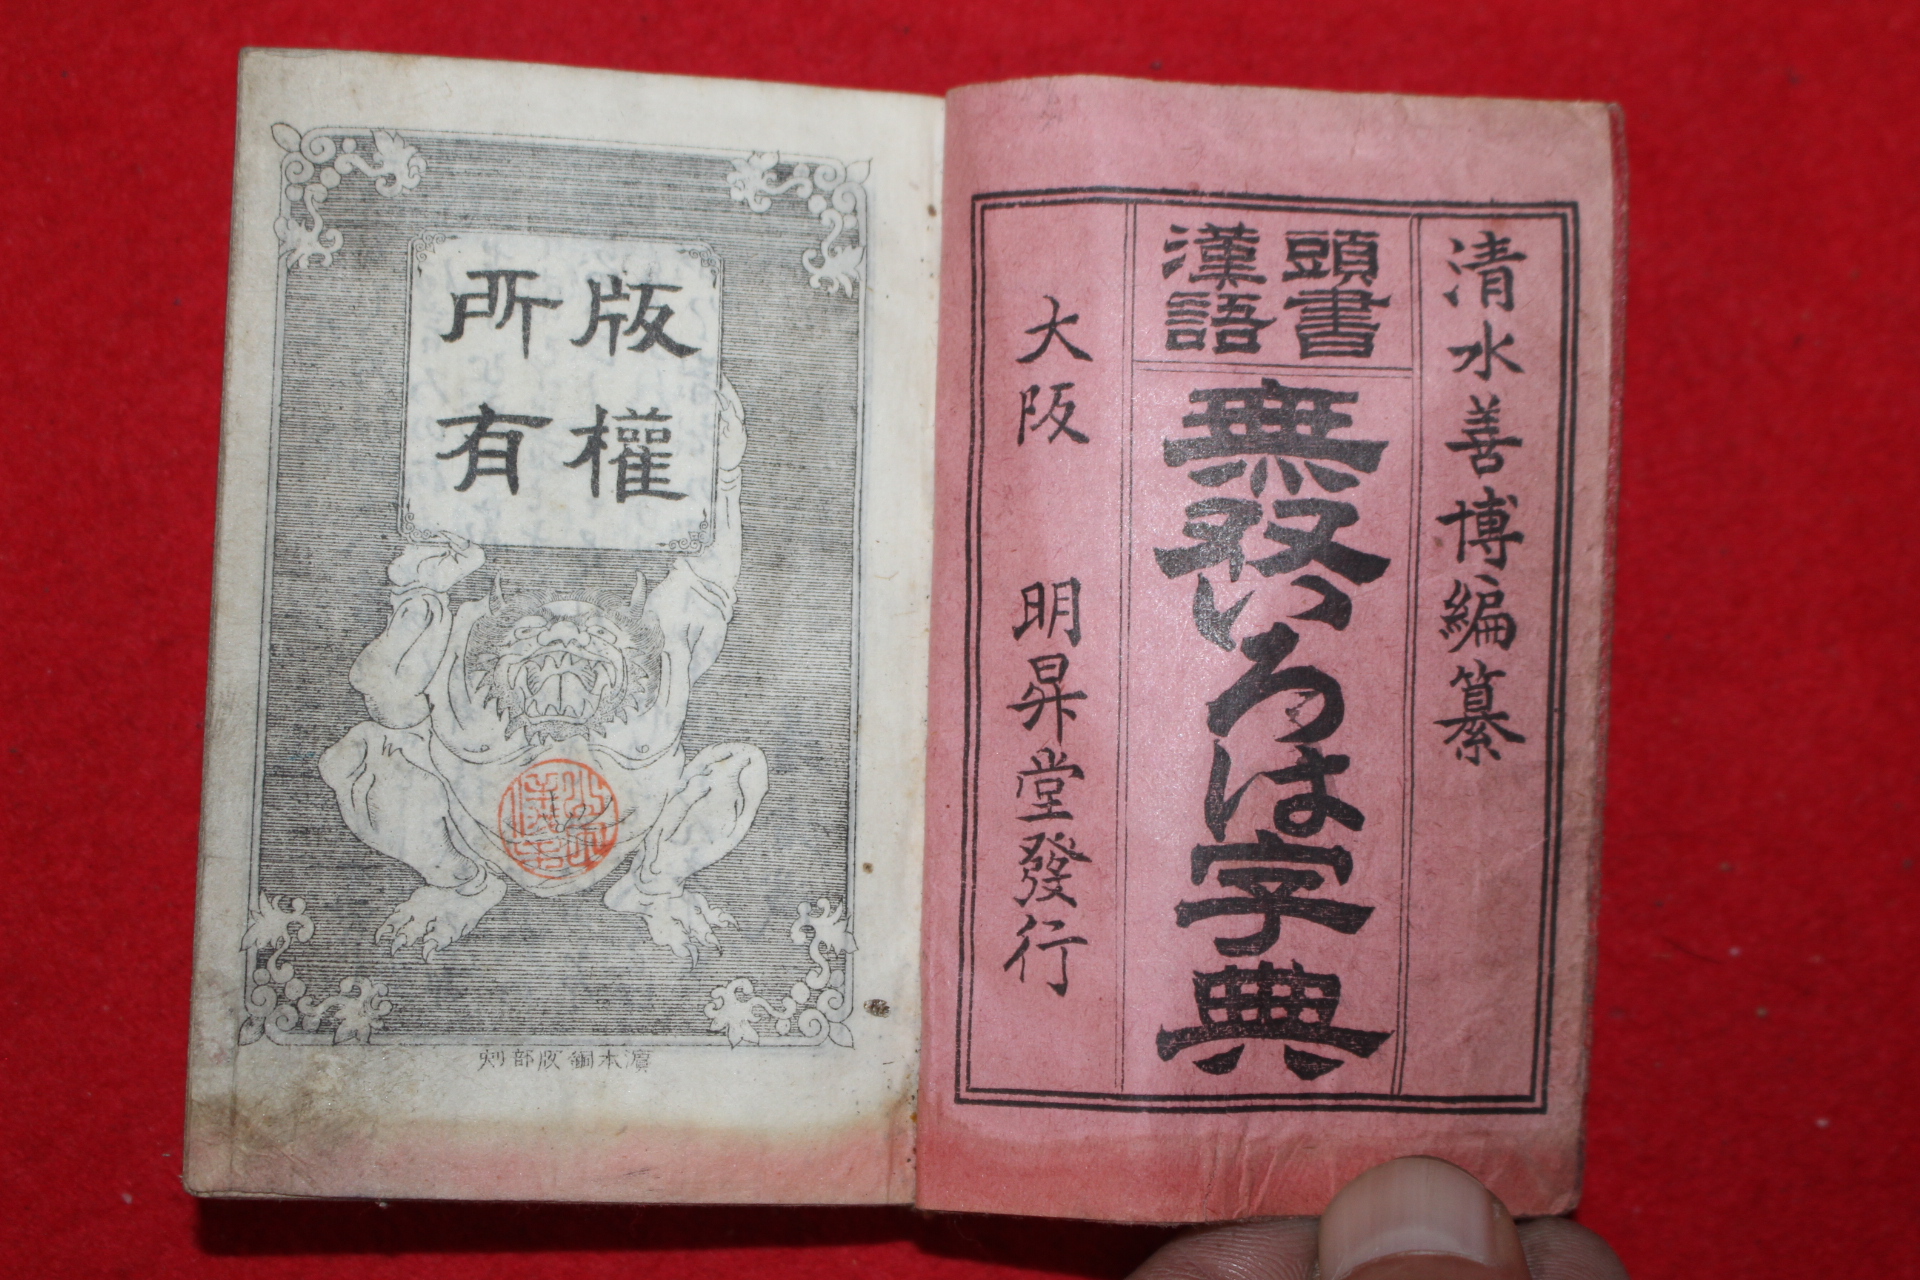 清水善博編纂
頭書
漢語
無双いろは字典
大阪 明昇堂發行
版權
所有
濱本銅版部刻